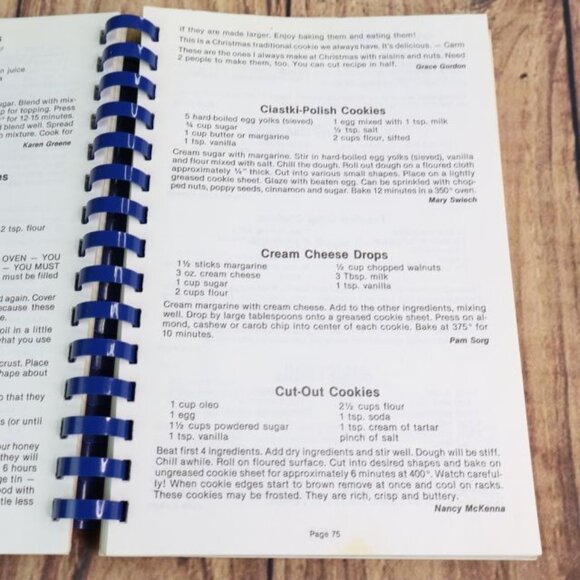 n juice
a
ugar. Blend with mix-
p for topping. Press
° for 12-15 minutes.
d blend well. Spread
o mixture. Cook for
Karen Greene
es
2 tsp. flour
OVEN — YOU
— YOU MUST
must be filled
d again. Cover
ecause these
e.
oil in a little
what you use
crust. Place
hape about
o that they
s (or until
our honey
they will
6 hours
ge tin —
ood with
tle less
if they are made larger. Enjoy baking them and eating them!
This is a Christmas traditional cookie we always have. It's delicious. — Carm
These are the ones I always make at Christmas with raisins and nuts. Need
2 people to make them, too. You can cut recipe in half.
Grace Gordon
Ciastki-Polish Cookies
5 hard-boiled egg yolks (sieved)
¾ cup sugar
1 cup butter or margarine
1 tsp. vanilla
1 egg mixed with 1 tsp. milk
½ tsp. salt
2 cups flour, sifted
Cream sugar with margarine. Stir in hard-boiled egg yolks (sieved), vanilla
and flour mixed with salt. Chill the dough. Roll out dough on a floured cloth
approximately ¼" thick. Cut into various small shapes. Place on a lightly
greased cookie sheet. Glaze with beaten egg. Can be sprinkled with chop-
ped nuts, poppy seeds, cinnamon and sugar. Bake 12 minutes in a 350° oven.
Mary Swiech
Cream Cheese Drops
1½ sticks margarine
3 oz. cream cheese
1 cup sugar
2 cups flour
½ cup chopped walnuts
3 Tbsp. milk
1 tsp. vanilla
Cream margarine with cream cheese. Add to the other ingredients, mixing
well. Drop by large tablespoons onto a greased cookie sheet. Press on al-
mond, cashew or carob chip into center of each cookie. Bake at 375° for
10 minutes.
Pam Sorg
Cut-Out Cookies
1 cup oleo
1 egg
1½ cups powdered sugar
1 tsp. vanilla
2½ cups flour
1 tsp. soda
1 tsp. cream of tartar
pinch of salt
Beat first 4 ingredients. Add dry ingredients and stir well. Dough will be stiff.
Chill awhile. Roll on floured surface. Cut into desired shapes and bake on
ungreased cookie sheet for approximately 6 minutes at 400°. Watch careful-
ly! When cookie edges start to brown remove at once and cool on racks.
These cookies may be frosted. They are rich, crisp and buttery.
Nancy McKenna
Page 75